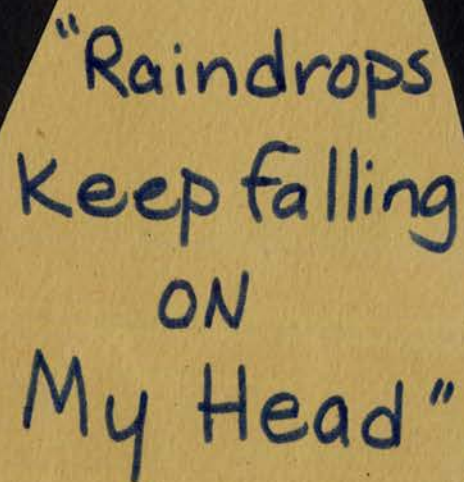 "Raindrops
Keep falling
ON
My Head"